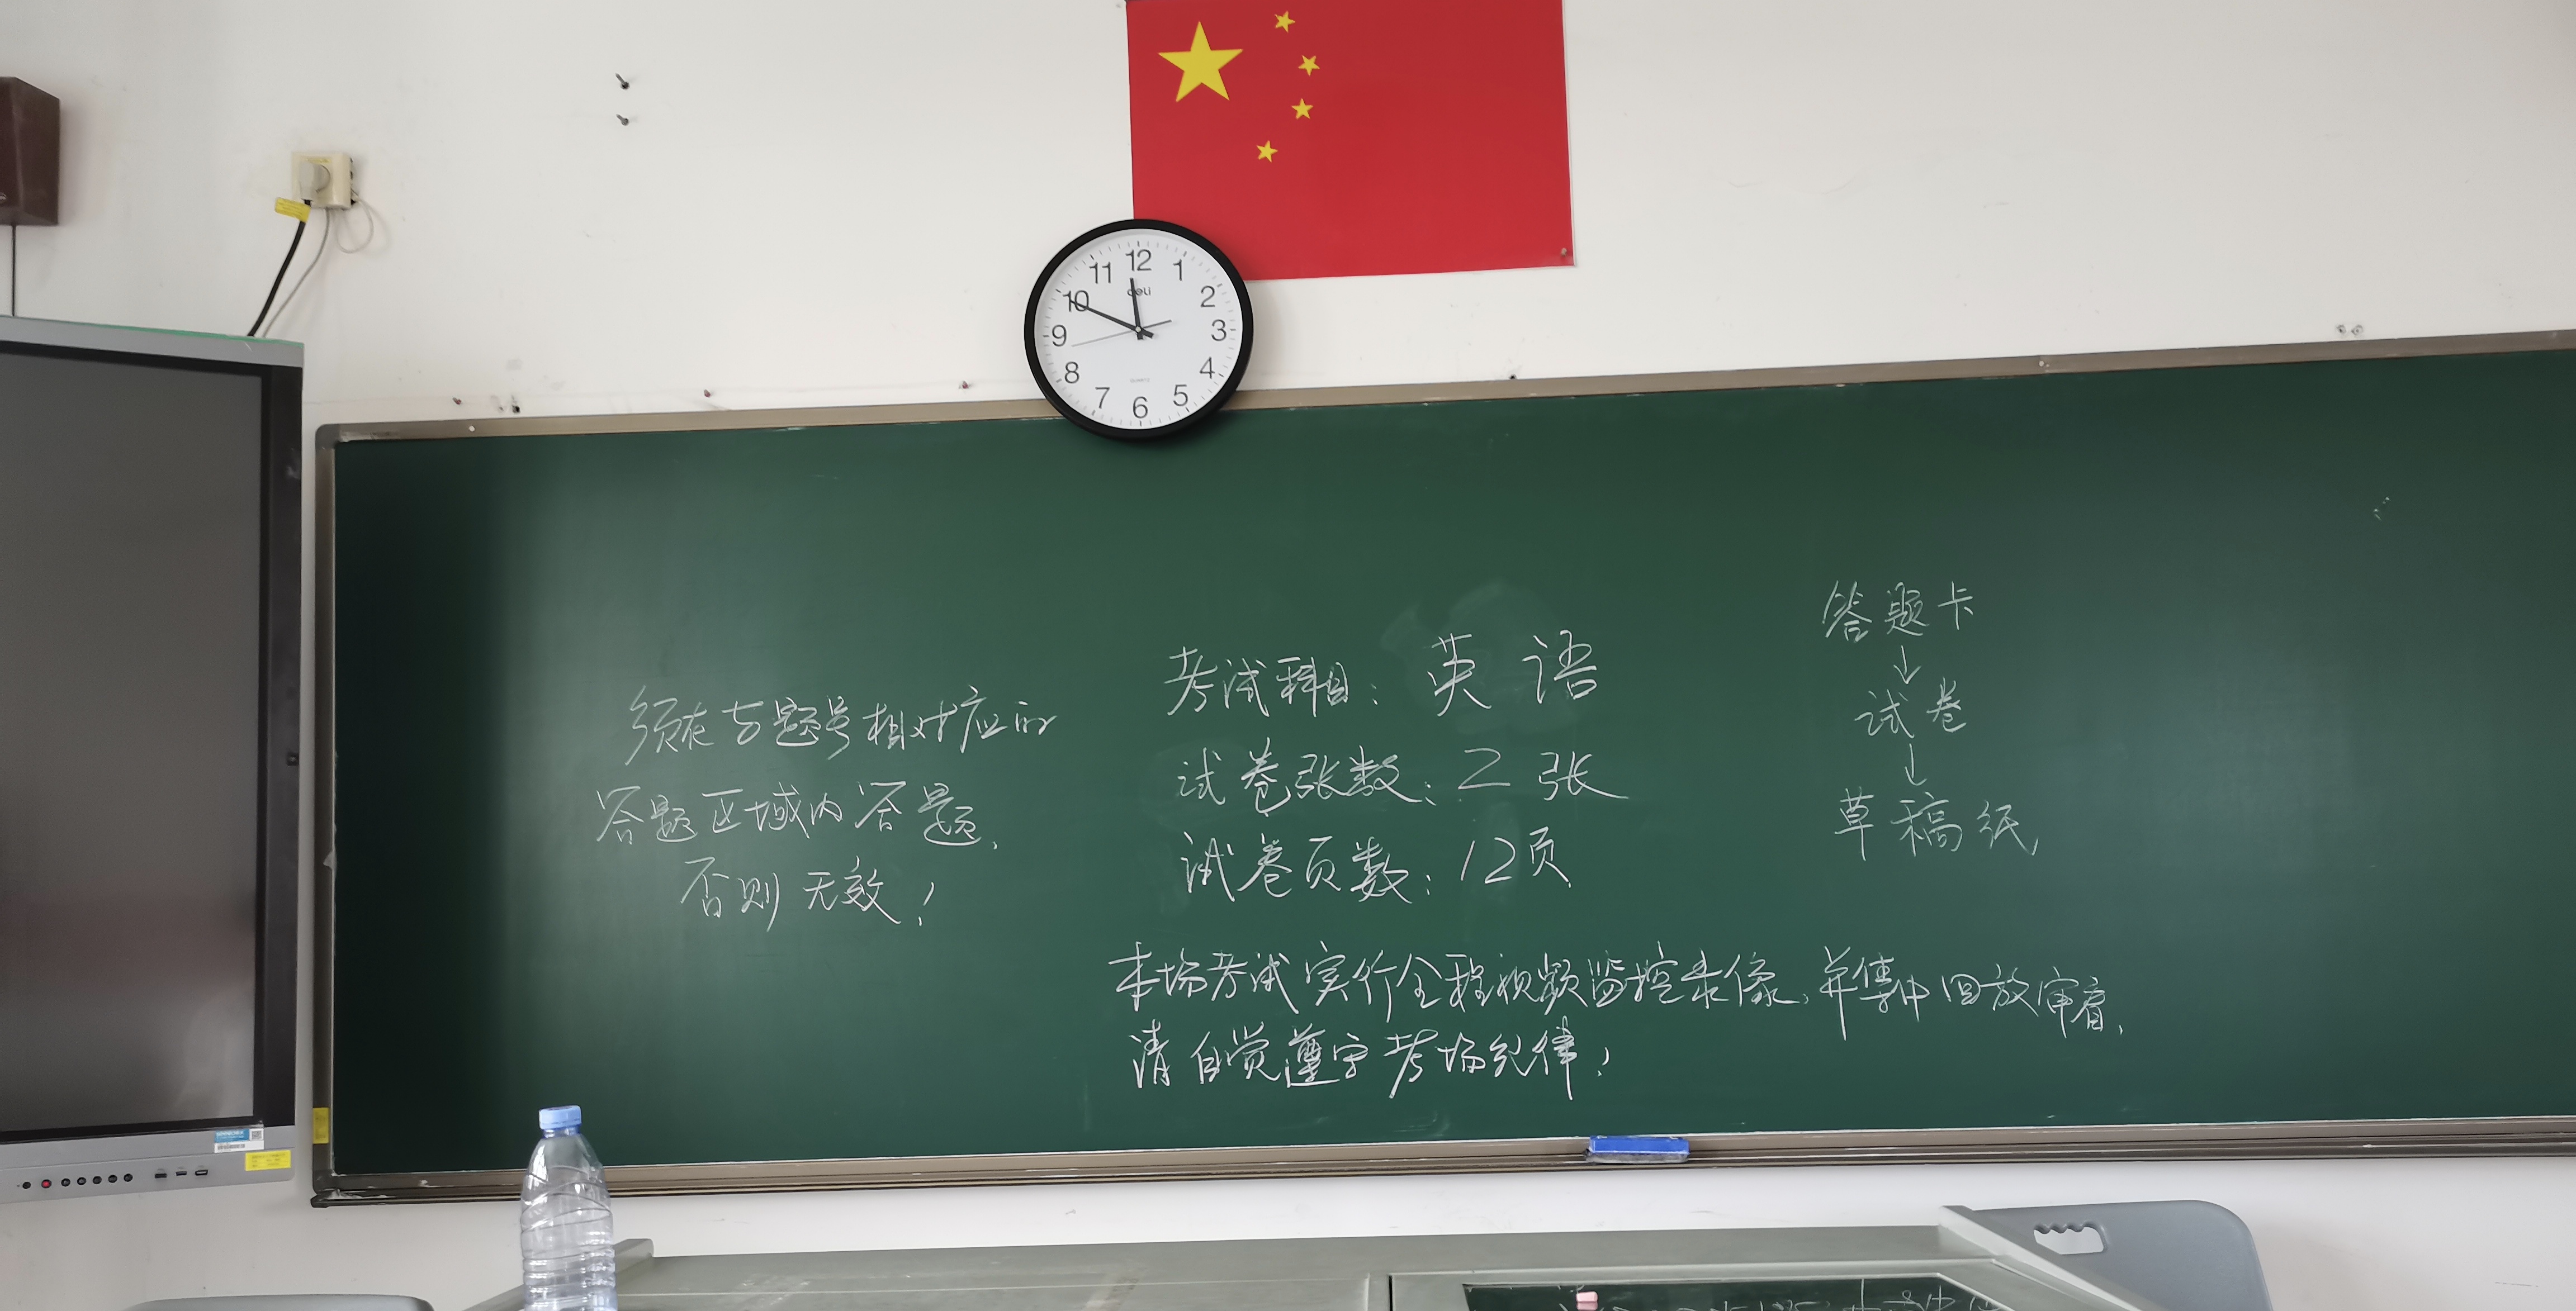 12
11
1
10
2
9
3
8
4
7
5
6
deli
QUARTZ
须在与题号相对应的
答题区域内答题,
否则无效!
考试科目: 英语
试卷张数: 2张
试卷页数: 12页
答题卡
↓
试卷
↓
草稿纸
本场考试实行全程视频监控录像,并集中回放审看,
请自觉遵守考场纪律!